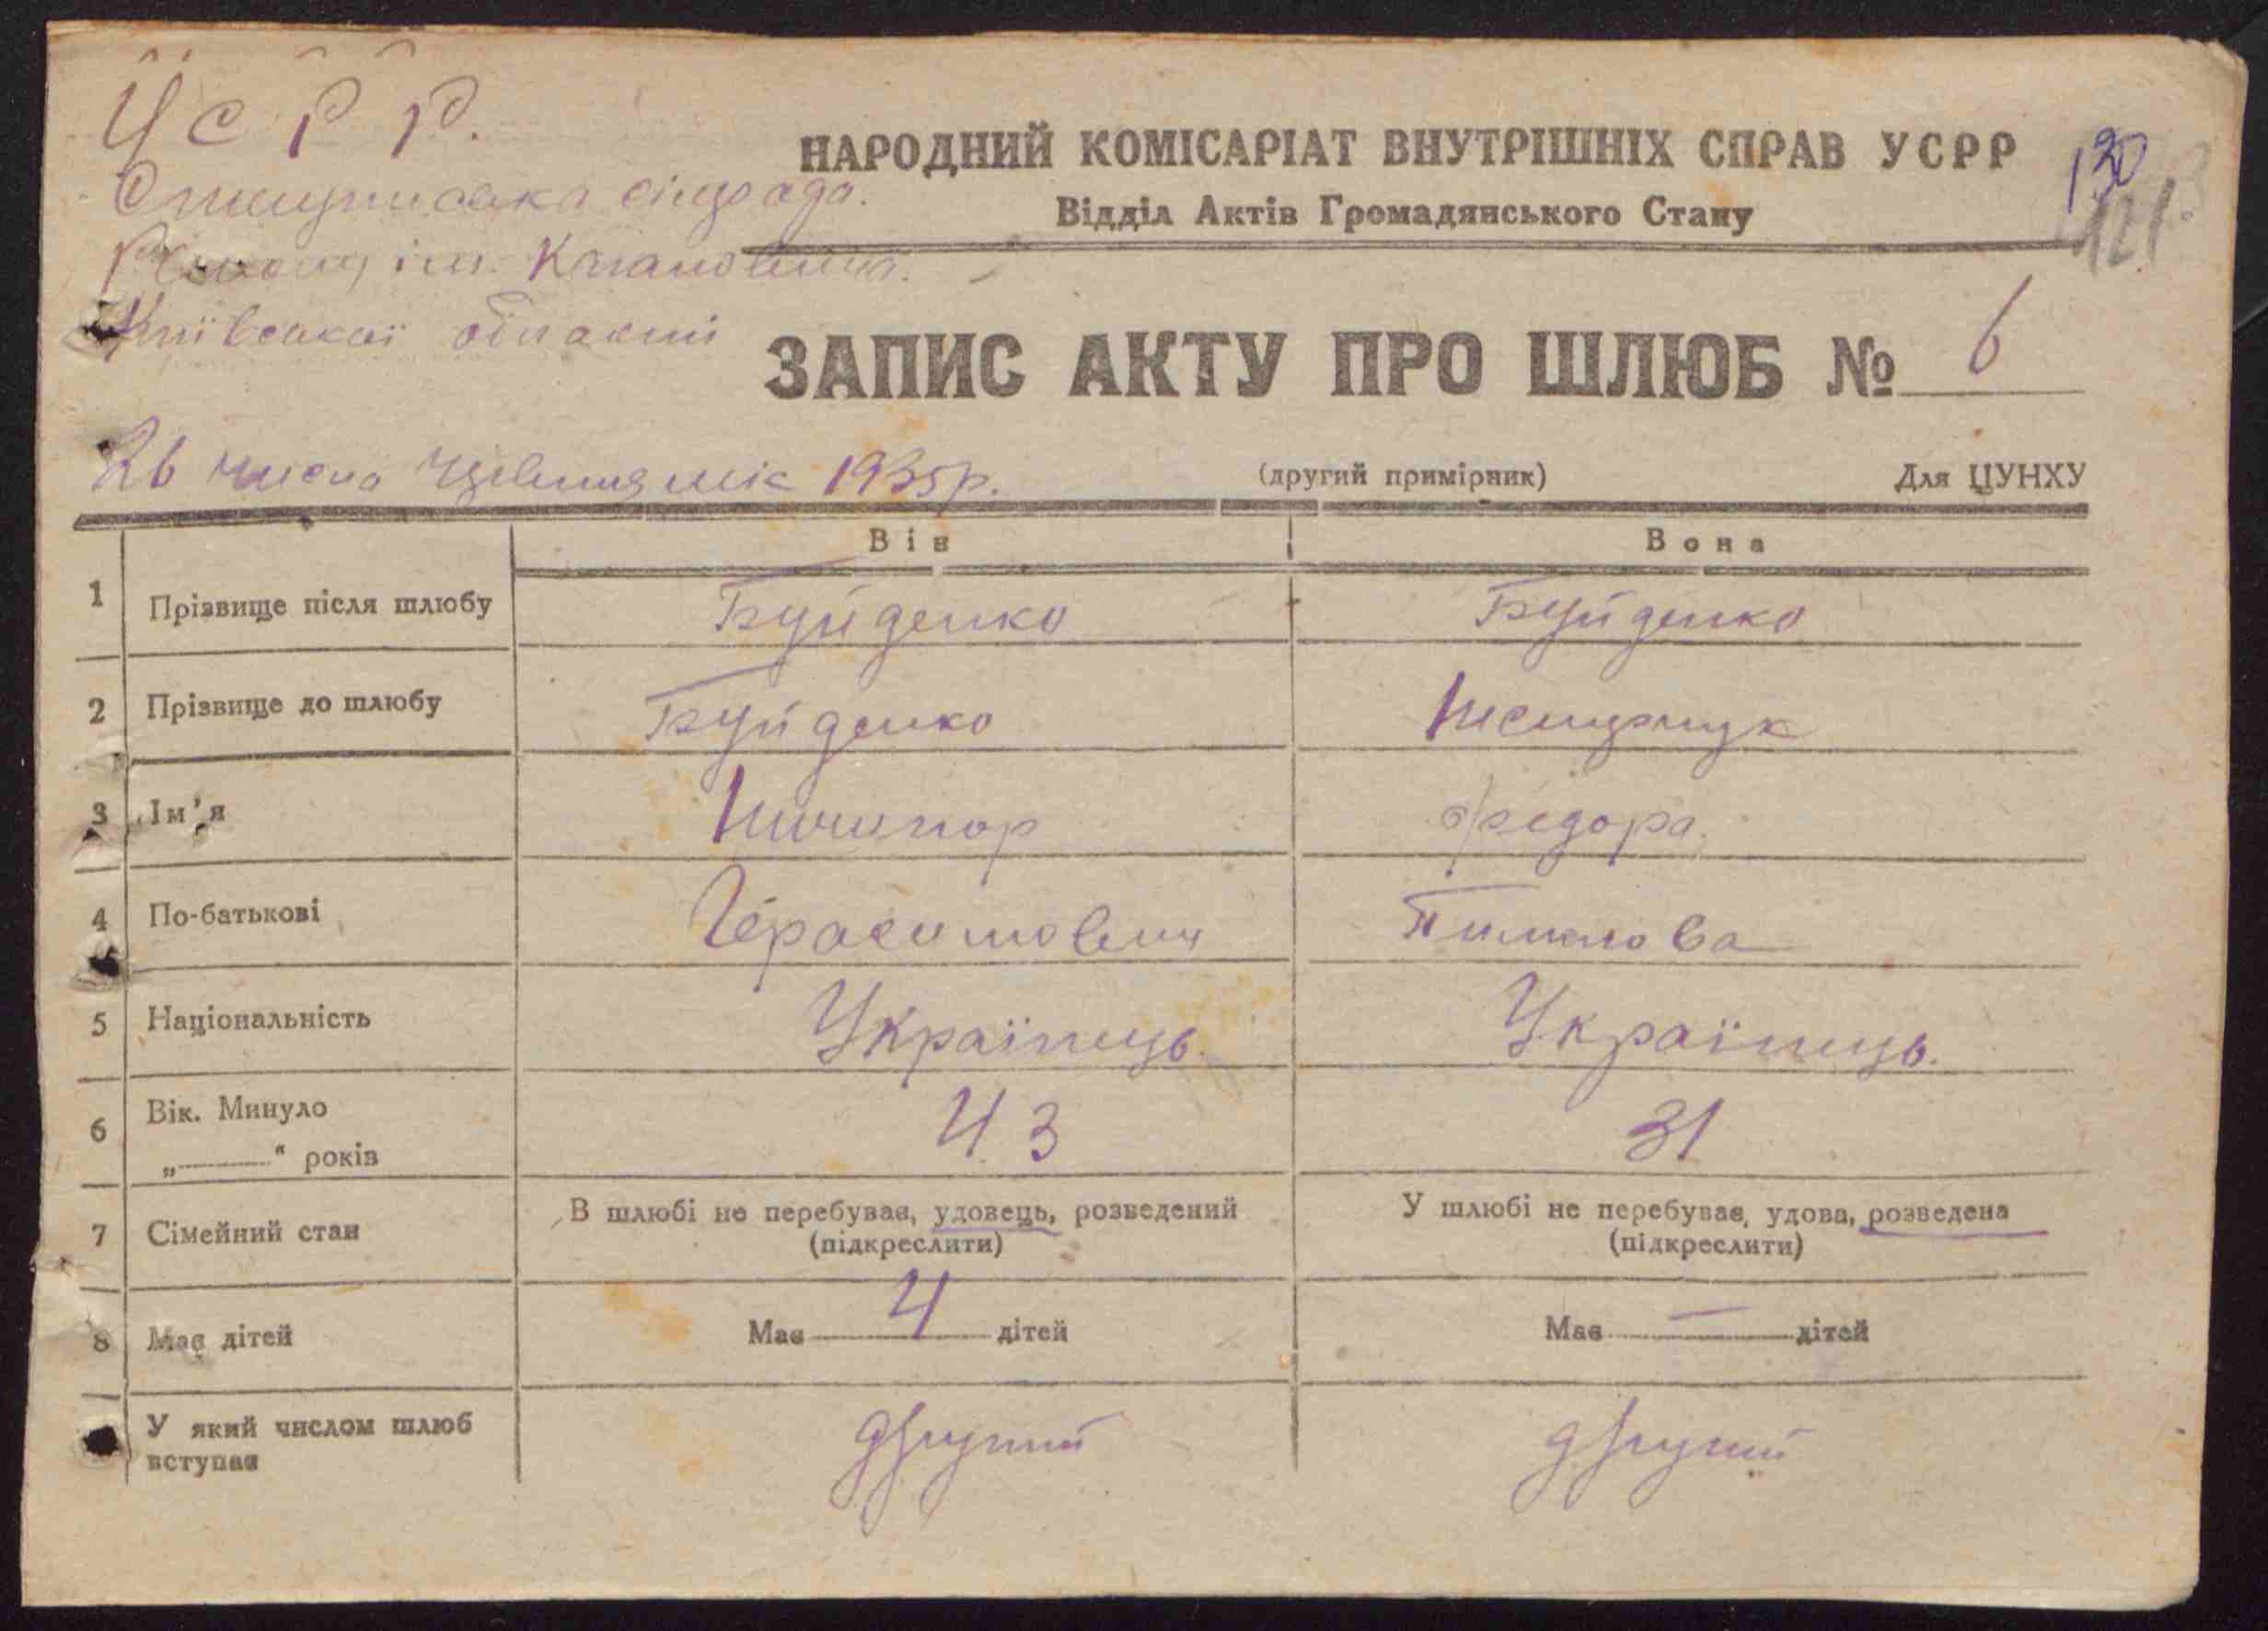 УСРР.
сільрада.
Району ім. Кагановича.
Київської області
НАРОДНИЙ КОМІСАРІАТ ВНУТРІШНІХ СПРАВ УСРР
130
121
Відділ Актів Громадянського Стану
ЗАПИС АКТУ ПРО ШЛЮБ № 6
26 числа Червня міс 1935р.
(другий примірник) Для ЦУНХУ
Він Вона
1 Прізвище після шлюбу Буйденко Буйденко
2 Прізвище до шлюбу Буйденко
3 Ім'я Ничипор Федора
4 По-батькові Герасимович Тимкова
5 Національність Українець. Українець.
6 Вік. Минуло 43 31
„——" років
7 Сімейний стан В шлюбі не перебував, удовець, розведений У шлюбі не перебував, удова, розведена
(підкреслити) (підкреслити)
8 Має дітей Має 4 дітей Має — дітей
У який числом шлюб другий другий
вступає